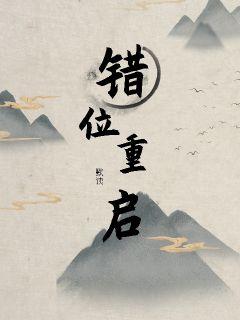 错位重启
默读